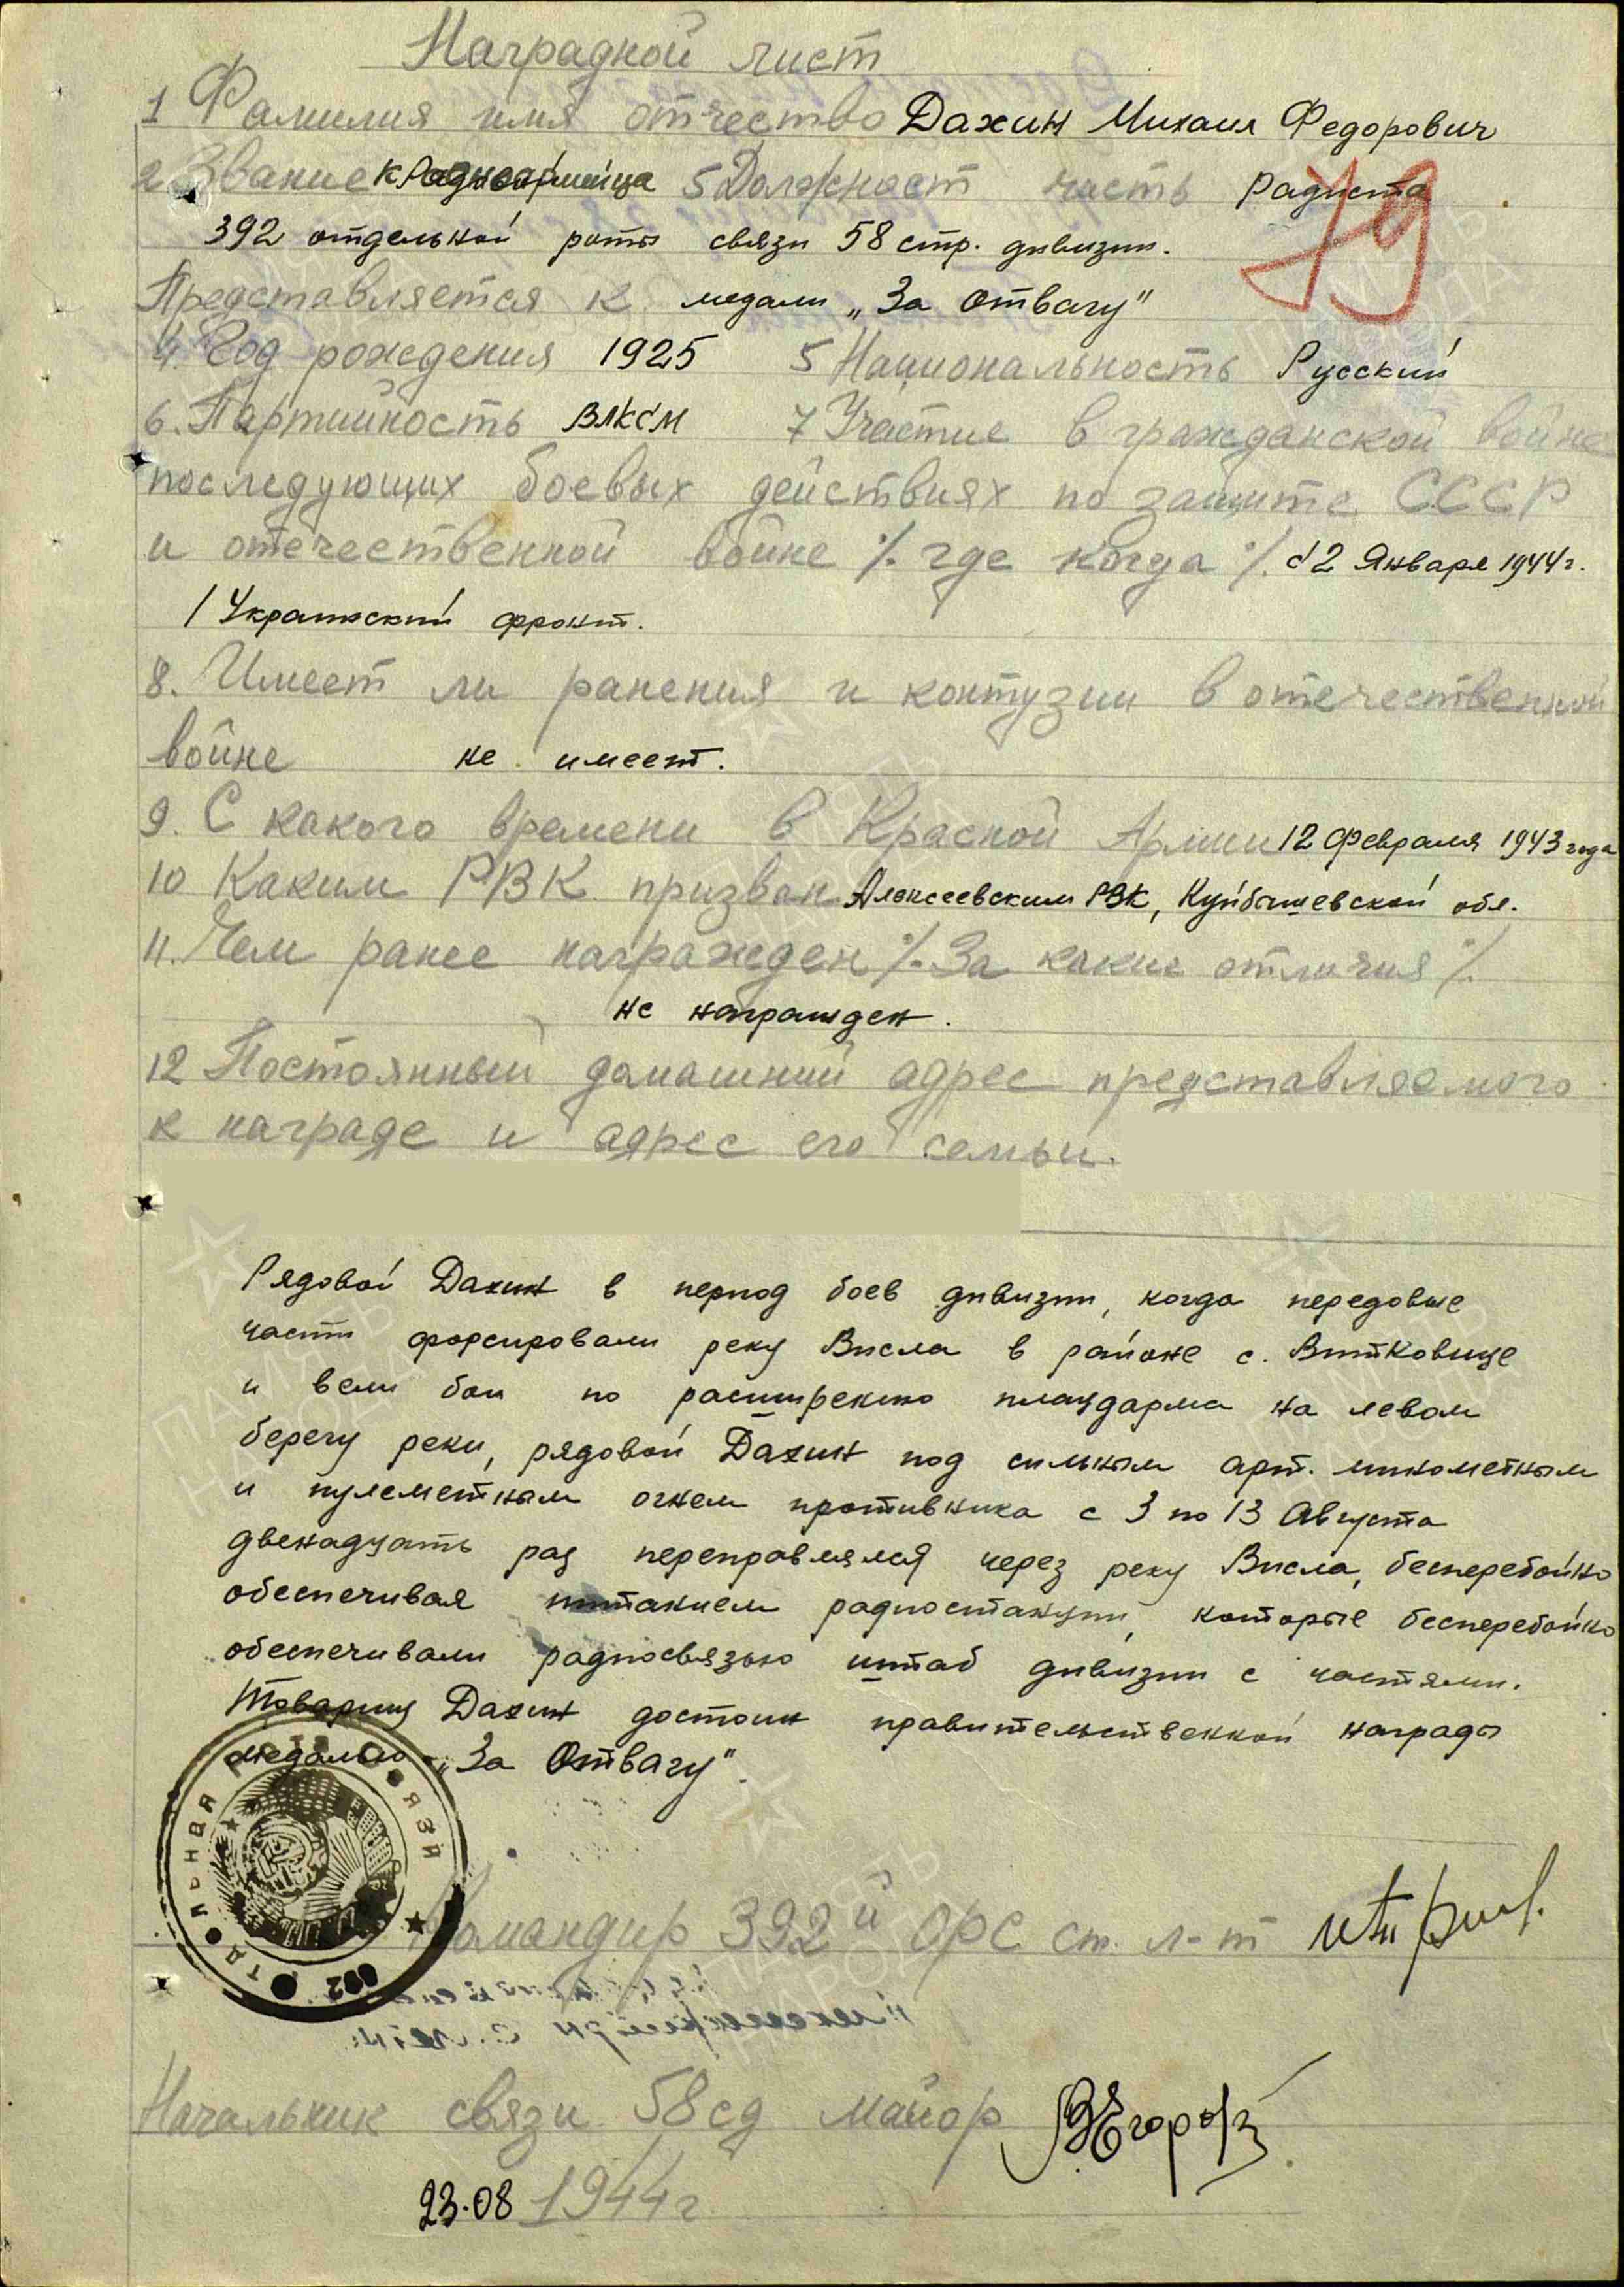 Наградной лист
1 Фамилия имя отчество Дахин Михаил Федорович
2 Звание красноармейца 5 Должност часть радиста
79
392 отдельной роты связи 58 стр. дивизии.
Представляется к медали „За Отвагу"
4. Год рождения 1925 5 Национальность Русский
6. Партийность ВЛКСМ 7 Участие в гражданской войне
последующих боевых действиях по защите СССР
и отечественной войне ./. где когда ./. с 2 Января 1944 г.
1 Украинский фронт.
8. Имеет ли ранения и контузии в отечественной
войне не имеет.
9. С какого времени в Красной Армии 12 февраля 1943 года
10 Каким РВК призван Алексеевским РВК, Куйбышевской обл.
11. Чем ранее награжден ./. За какие отличия ./.
не награжден.
12 Постоянный домашний адрес представляемого
к награде и адрес его семьи.
Рядовой Дахин в период боев дивизии, когда передовые
части форсировали реку Висла в районе с. Витковице
и вели бои по расширению плацдарма на левом
берегу реки, рядовой Дахин под сильным арт. минометным
и пулеметным огнем противника с 3 по 13 Августа
двенадцать раз переправлялся через реку Висла, бесперебойно
обеспечивая питанием радиостанции, которые бесперебойно
обеспечивали радиосвязью штаб дивизии с частями.
Товарищ Дахин достоин правительственной награды
медалью „За Отвагу".
Командир 392й ОРС ст. л-т
Начальник связи 58 сд майор Егоров
23.08 1944 г